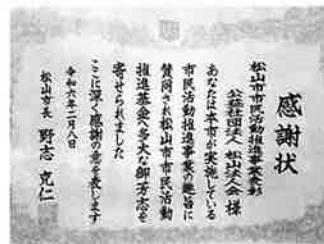 感謝状
松山市市民活動推進事業表彰
公益社団法人 松山法人会 様
あなたは本市が実施している
市民活動推進事業の趣旨に
賛同され松山市市民活動
推進基金へ多大な御芳志を
寄せられました
ここに深く感謝の意を表します
令和六年二月八日
松山市長 野志 克仁